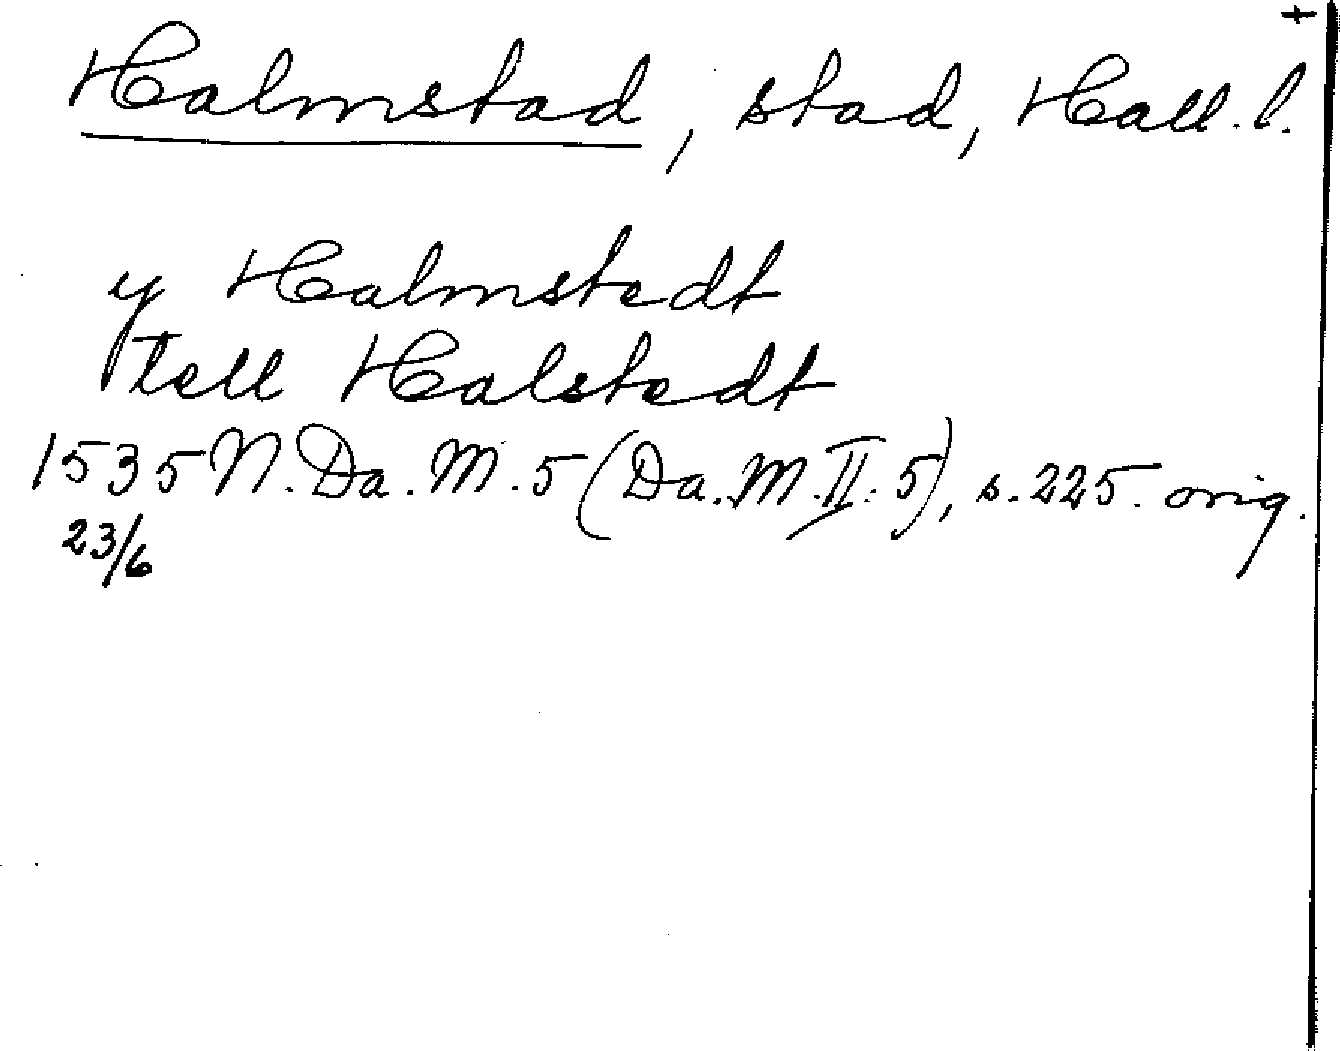 Halmstad, stad, Hall. l.
y Halmstedt
tell Halstedt
1535 N. Da. M. 5 (Da. M. II. 5), s. 225. orig.
23/6